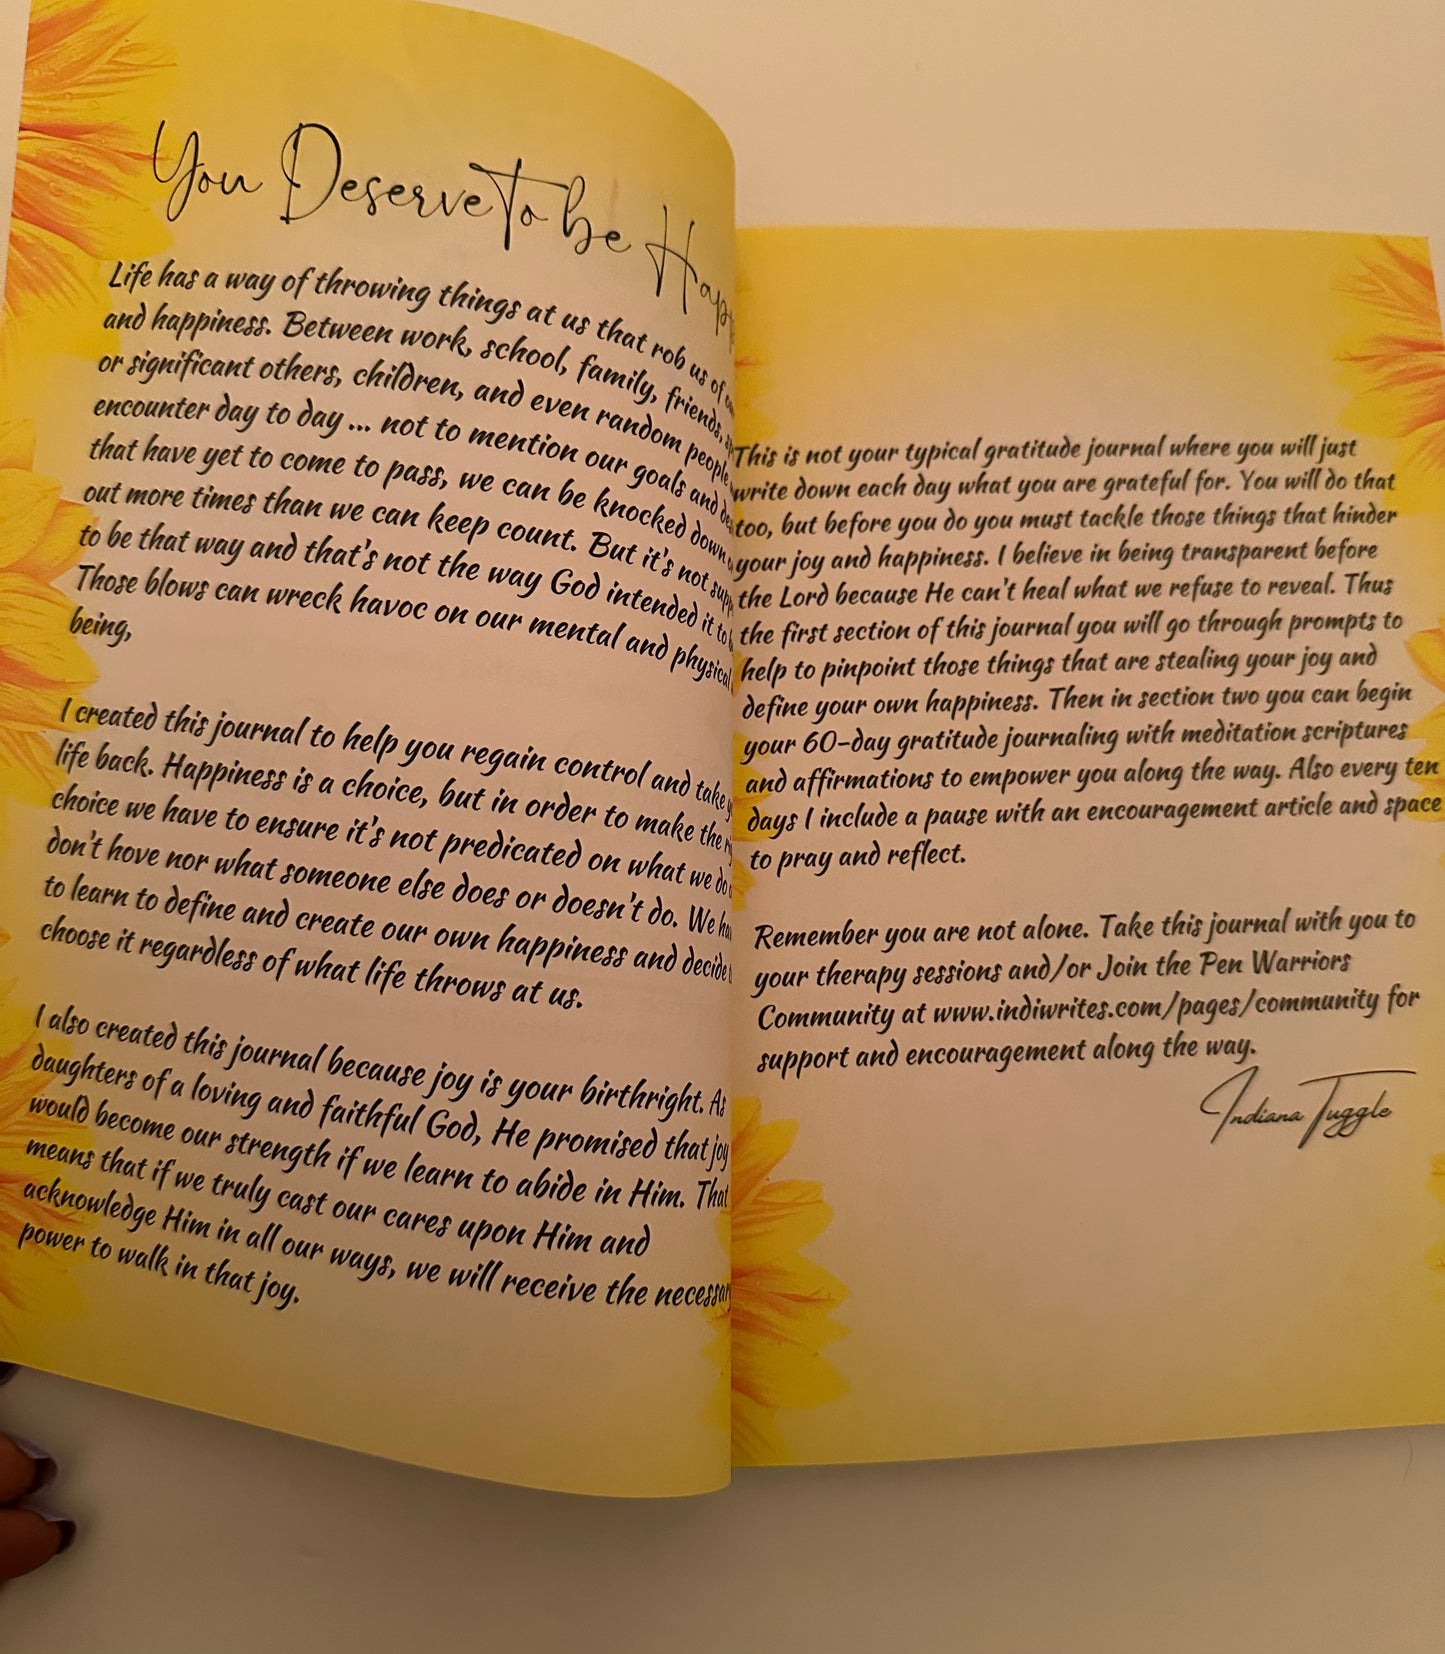 You Deserve To be
Life has a way of throwing things at us that rob us of
and happiness. Between work, school, family, friends,
or significant others, children, and even random people
encounter day to day ... not to mention our goals and
that have yet to come to pass, we can be knocked down
out more times than we can keep count. But it's not
to be that way and that's not the way God intended it to
Those blows can wreck havoc on our mental and physical
being,
I created this journal to help you regain control and take
life back. Happiness is a choice, but in order to make the
choice we have to ensure it's not predicated on what we do
don't hove nor what someone else does or doesn't do. We
to learn to define and create our own happiness and decide
choose it regardless of what life throws at us.
I also created this journal because joy is your birthright. As
daughters of a loving and faithful God, He promised that joy
would become our strength if we learn to abide in Him. That
means that if we truly cast our cares upon Him and
acknowledge Him in all our ways, we will receive the necessary
power to walk in that joy.
This is not your typical gratitude journal where you will just
write down each day what you are grateful for. You will do that
too, but before you do you must tackle those things that hinder
your joy and happiness. I believe in being transparent before
the Lord because He can't heal what we refuse to reveal. Thus
the first section of this journal you will go through prompts to
help to pinpoint those things that are stealing your joy and
define your own happiness. Then in section two you can begin
your 60-day gratitude journaling with meditation scriptures
and affirmations to empower you along the way. Also every ten
days I include a pause with an encouragement article and space
to pray and reflect.
Remember you are not alone. Take this journal with you to
your therapy sessions and/or Join the Pen Warriors
Community at www.indiwrites.com/pages/community for
support and encouragement along the way.
Indiana Tuggle